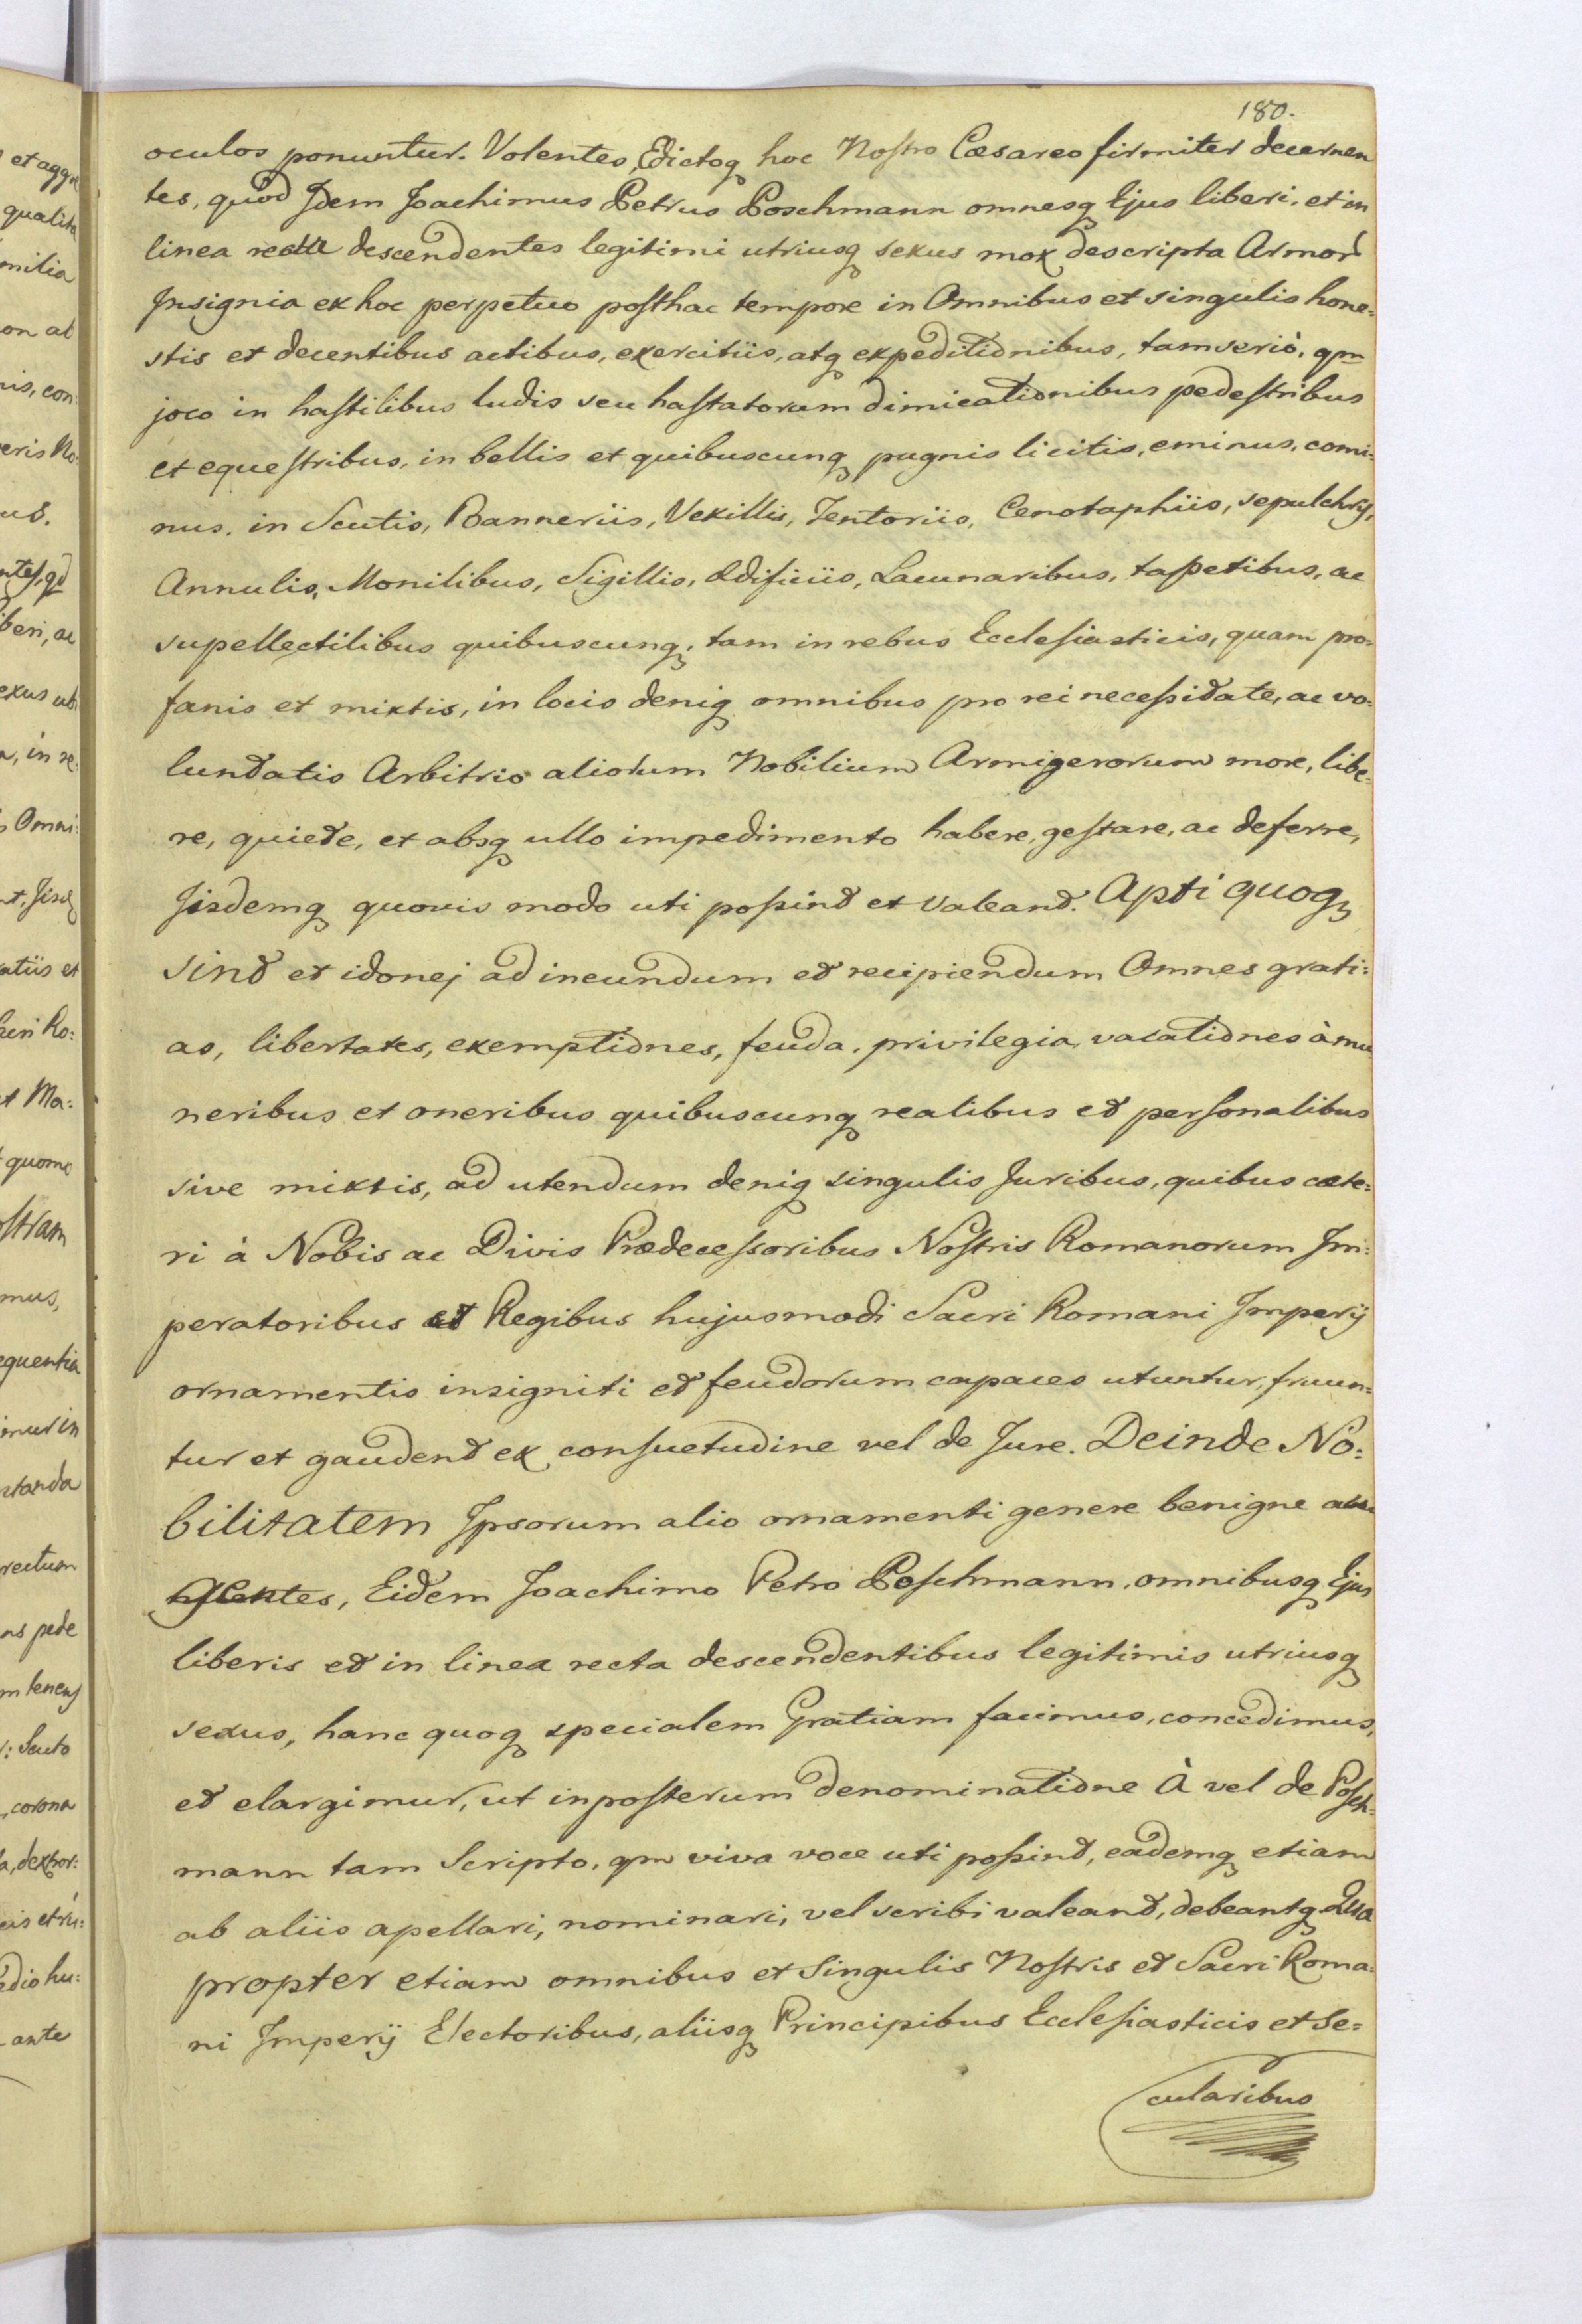 180.
oculos ponuntur. Volentes, Edictoq hoc Nostro Cæsareo firmiter decernen
tes, quòd Idem Joachimus Petrus Poschmann omnesq Ejus liberi, et in
linea recta descendentes legitimi utriusq sexus mox descripta Armor
Insignia ex hoc perpetuo posthac tempore in Omnibus et singulis hone=
stis et decentibus actibus, exercitiis, atq expeditionibus, tam seriò, qm
joco in hastilibus ludis seu hastatorum dimicationibus pedestribus
et equestribus, in bellis et quibuscunq pugnis licitis, eminus, comi=
nus, in Scutis, Banneriis, Vexillis, Tentoriis, Cenotaphiis, sepulchris,
Annulis, Monilibus, Sigillis, Ædificiis, Lacunaribus, tapetibus, ac
supellectilibus quibuscunq, tam in rebus Ecclesiasticis, quam pro=
fanis et mixtis, in locis deniq omnibus pro rei necessitate, ac vo=
luntatis Arbitrio aliorum Nobilium Armigerorum more, libe=
re, quiete, et absq ullo impedimento habere, gestare, ac deferre,
Iisdemq quovis modo uti possint et valeant. Apti quoq
sint et idonej ad ineundum et recipiendum Omnes grati=
as, libertates, exemptiones, feuda, privilegia, vacationes à mu
neribus et oneribus quibuscunq realibus et personalibus
sive mixtis, ad utendum deniq singulis Juribus, quibus cæte=
ri à Nobis ac Divis Prædecessoribus Nostris Romanorum Im=
peratoribus et Regibus hujusmodi Sacri Romani Imperij
ornamentis insigniti et feudorum capaces utuntur, fruun=
tur et gaudent ex consuetudine vel de Jure. Deinde No=
bilitatem Ipsorum alio ornamenti genere benigne
Eidem Joachimo Petro Poschmann, omnibusq Ejus
liberis et in linea recta descendentibus legitimis utriusq
sexus, hanc quoq specialem Gratiam facimus, concedimus,
et elargimur, ut inposterum denominatione À vel de Posch=
mann tam Scripto, qm viva voce uti possint, eademq etiam
ab aliis apellari, nominari, vel scribi valeant, debeantq Qua
propter etiam omnibus et Singulis Nostris et Sacri Roma=
ni Imperij Electoribus, aliisq Principibus Ecclesiasticis et Se=
cularibus